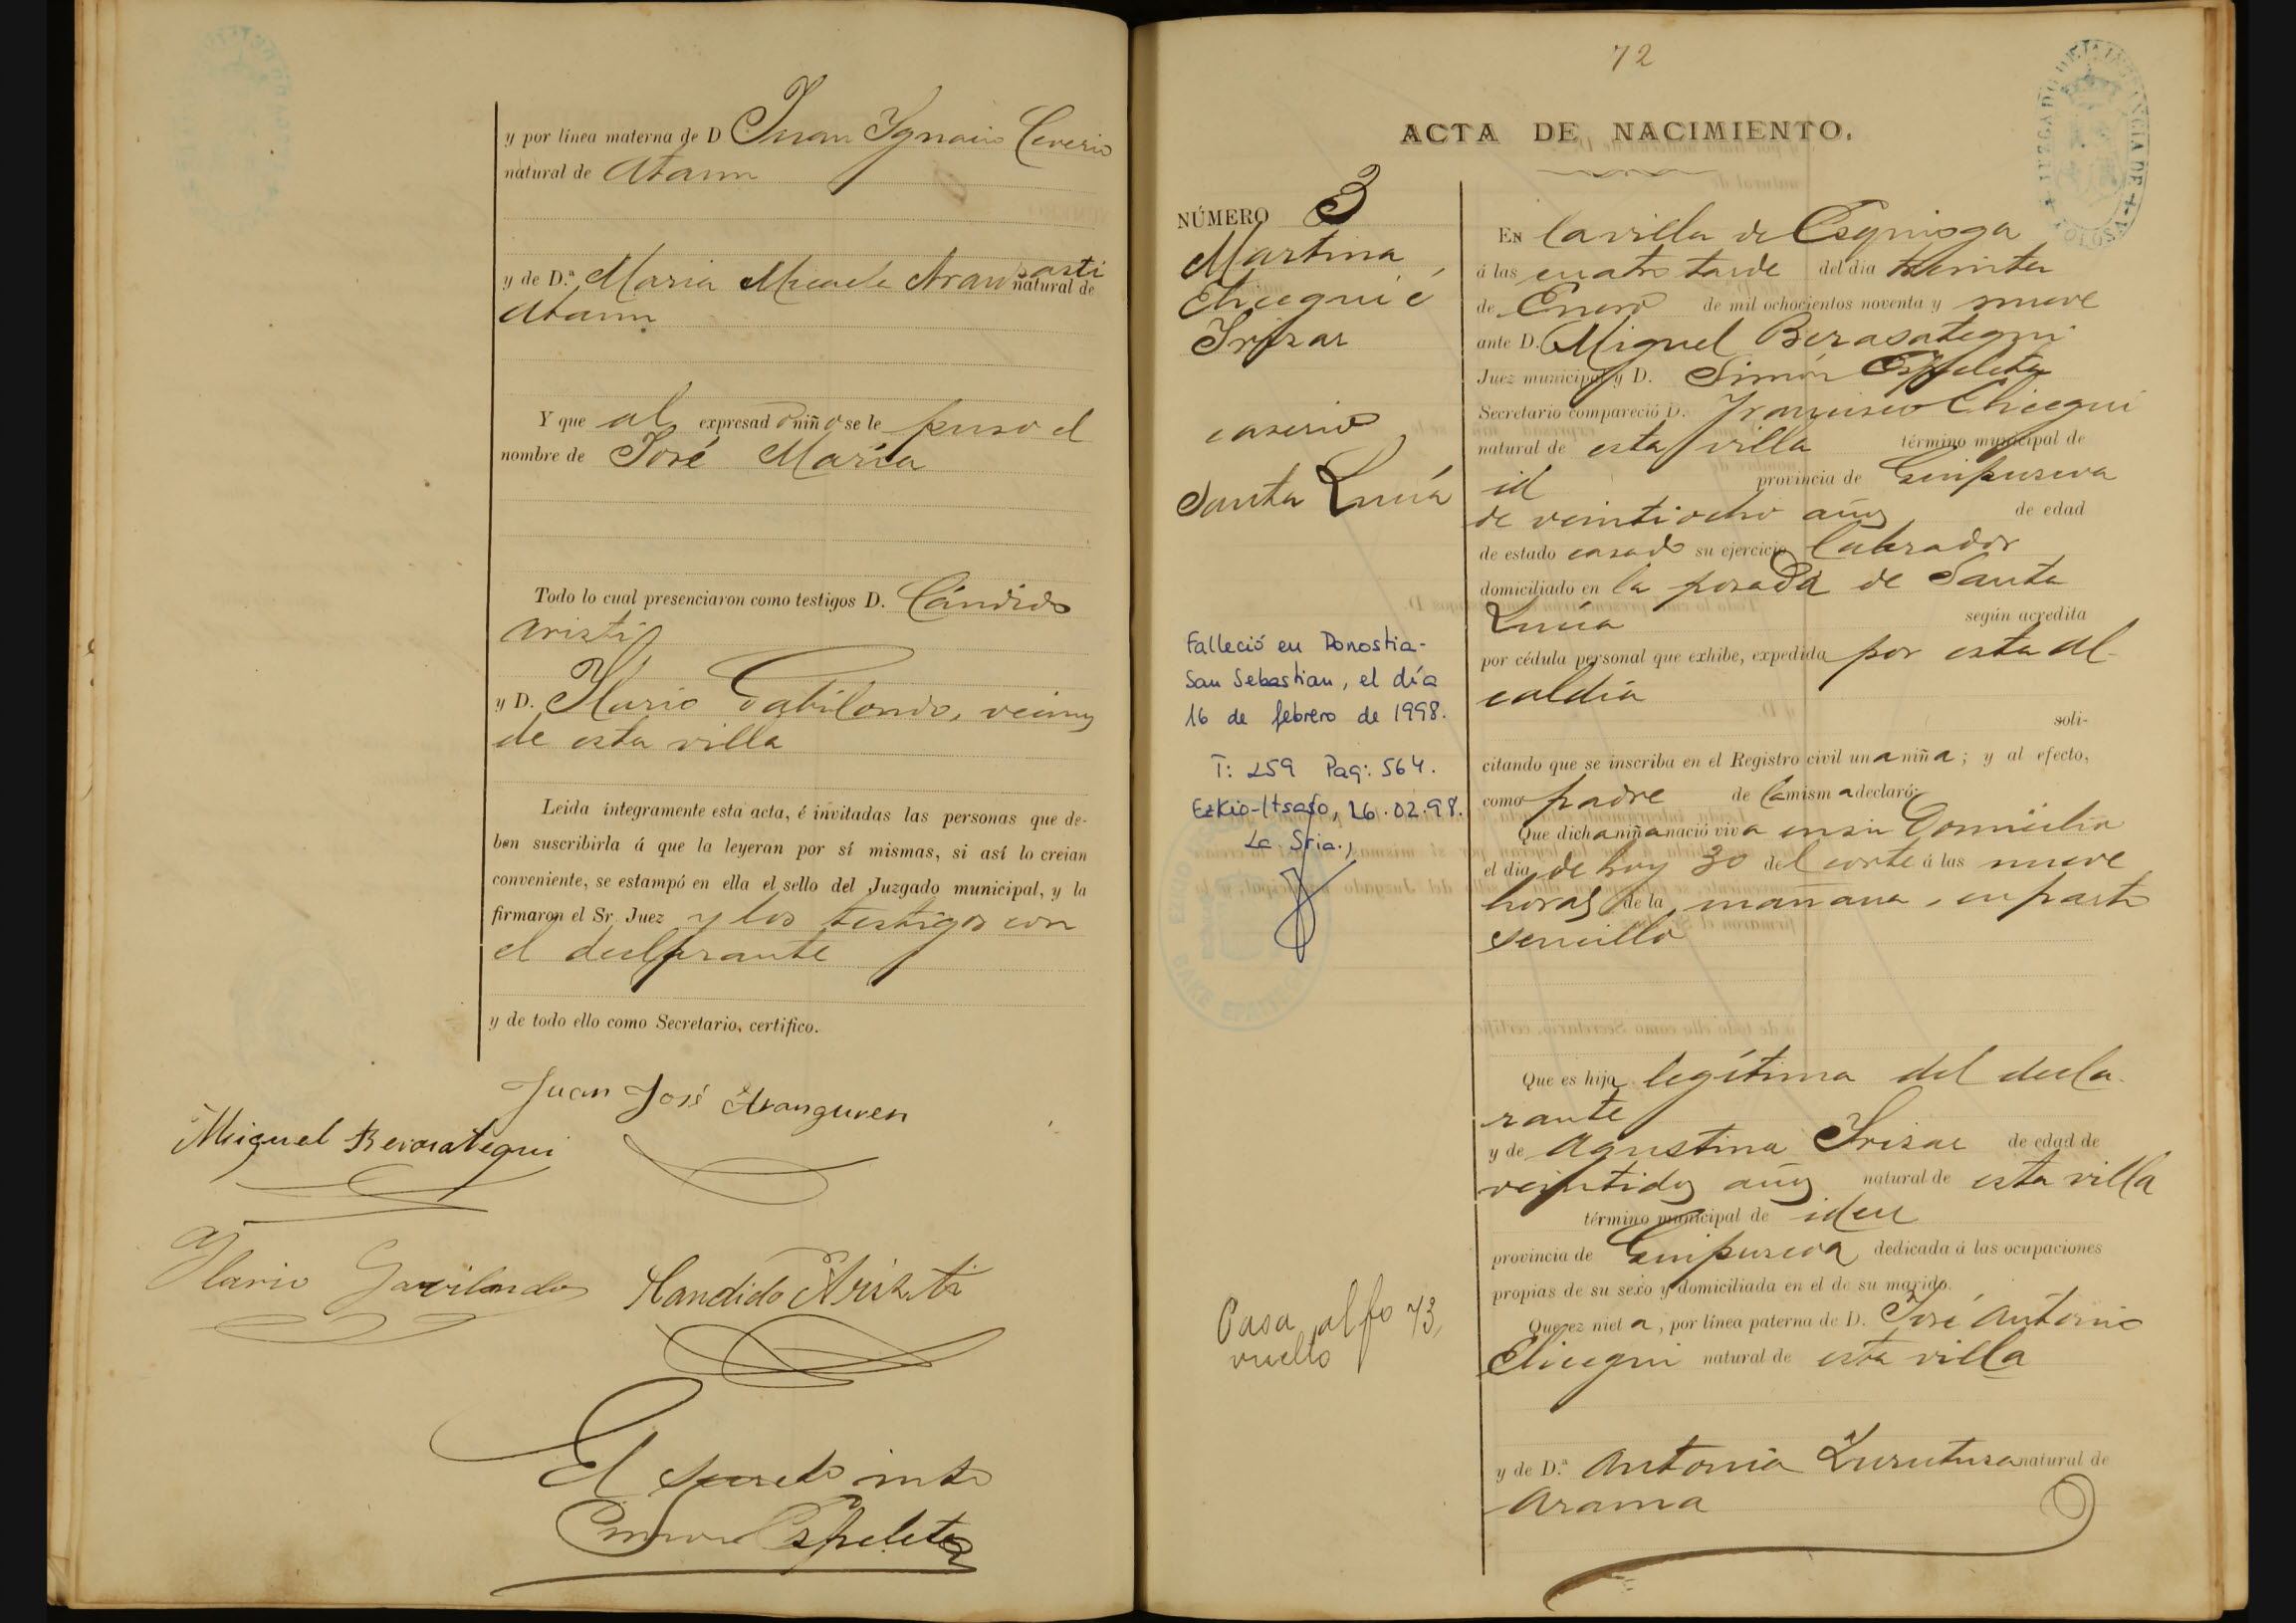 y por línea materna de D Juan Ygnacio Ceverio
natural de Ataun
y de D.ª Maria Micaela Aransasti natural de
Ataun
Y que al expresado niño se le puso el
nombre de José María
Todo lo cual presenciaron como testigos D. Cándido
Aristi
y D. Ylario Gabilondo, vecinos
de esta villa
Leida íntegramente esta acta, é invitadas las personas que de-
ben suscribirla á que la leyeran por sí mismas, si así lo creian
conveniente, se estampó en ella el sello del Juzgado municipal, y la
firmaron el Sr. Juez y los testigos con
el declarante
y de todo ello como Secretario, certifico.
Juan José Aranguren
Miguel Berasategui
Ylario Gavilondo Kandido Aristi
El
Espeleta
72
ACTA DE NACIMIENTO.
JUZGADO DE 1.ª INSTANCIA DE TOLOSA
NÚMERO 3
Martina
Elicegui é
Irizar
caserio
Santa Lucía
Falleció en Donostia-
San Sebastian, el día
16 de febrero de 1998.
T: 259 Pag: 564.
Ezkio-Itsaso, 26.02.98.
La Sria.,
Pasa al fo 73,
vuelto
En la villa de Ezquioga
á las cuatro tarde del dia treinta
de Enero de mil ochocientos noventa y nueve
ante D. Miguel Berasategui
Juez municipal y D. Simón Espeleta
Secretario compareció D. Francisco Elicegui
natural de esta villa término municipal de
id provincia de Guipuzcoa
de veintiocho años de edad
de estado casado su ejercicio labrador
domiciliado en la posada de Santa
Lucía según acredita
por cédula personal que exhibe, expedida por esta Al-
caldía
soli-
citando que se inscriba en el Registro civil una niña; y al efecto,
como padre de la misma declaró:
Que dicha niña nació viva en su domicilio
el dia de hoy 30 del corte á las nueve
horas de la mañana, en parto
sencillo
Que es hija legítima del decla-
rante
y de Agustina Irizar de edad de
veintidos años natural de esta villa
término municipal de idem
provincia de Guipuzcoa dedicada á las ocupaciones
propias de su sexo y domiciliada en el de su marido.
Que ez nieta, por línea paterna de D. José Antonio
Elicegui natural de esta villa
y de D.ª Antonia Zurutuza natural de
Arama